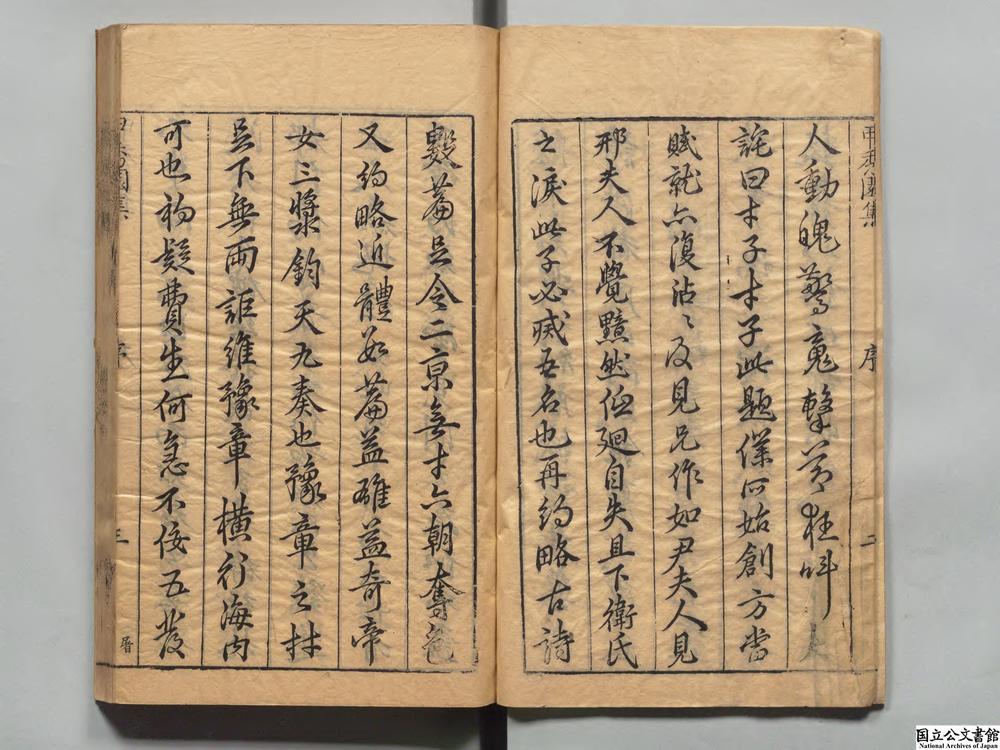 甲秀園集
序
二
人動魄驚魂擊節狂叫
詫曰才子才子此題僕所始創方當
賦就亦復沾〻及見兄作如尹夫人見
邢夫人不覺黯然低廻自失且下衛氏
之淚此子必㓕吾名也再約略古詩
數篇足令二京無才六朝奪色
又約略近體如篇益確益奇帝
女三漿鈞天九奏也豫章之材
吳下無兩詎維豫章橫行海內
可也初疑費生何急不佞五發
序
三
國立公文書館
National Archives of Japan